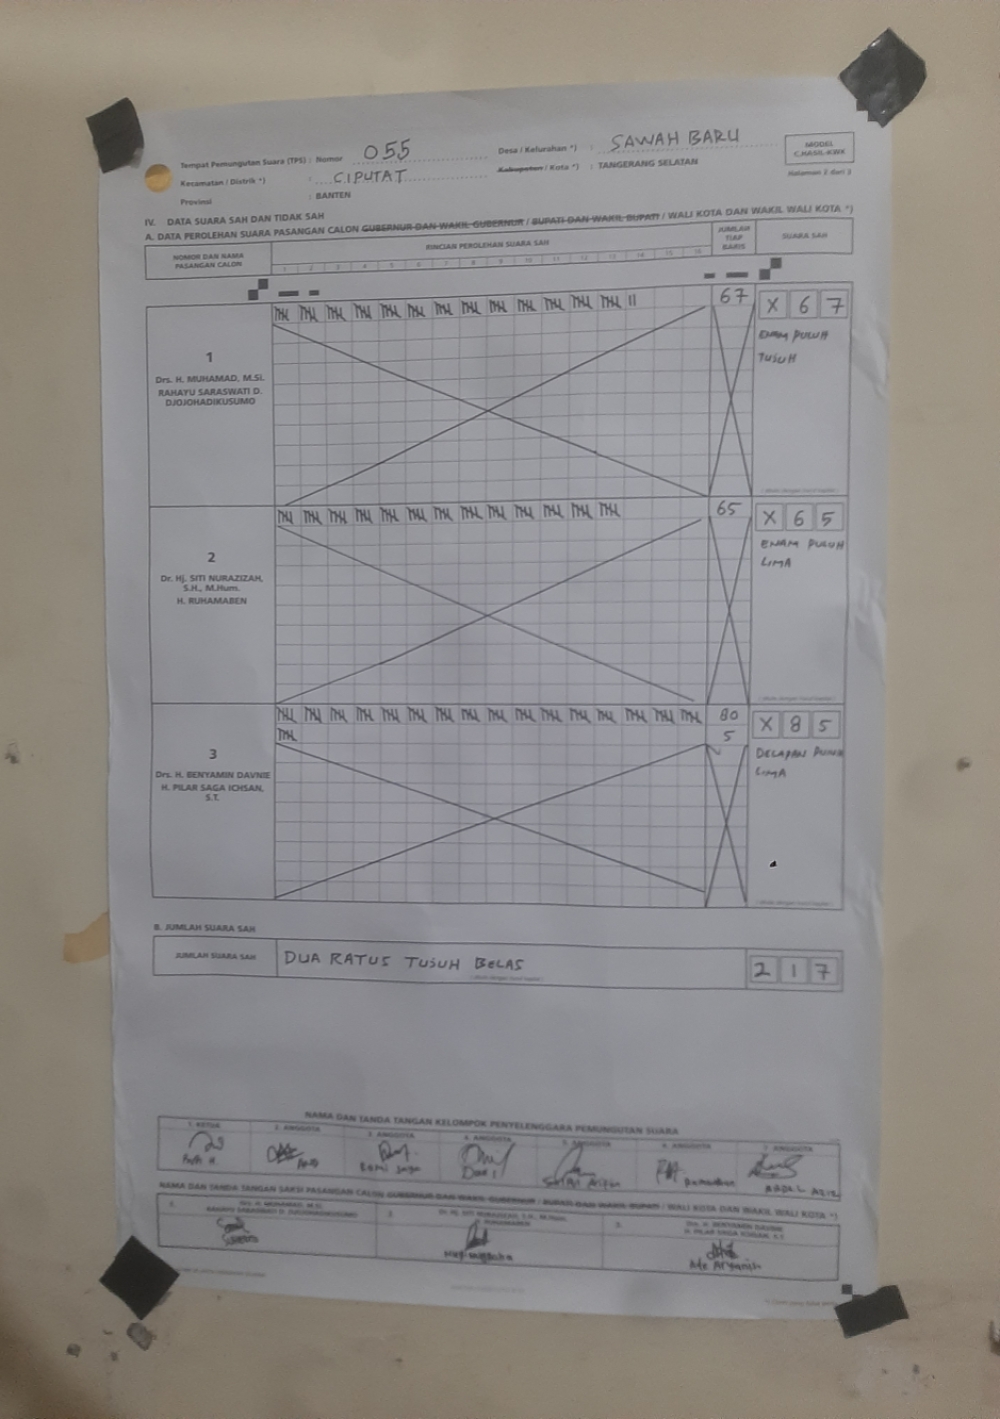 Tempat Pemungutan Suara (TPS) : Nomor 055
Desa / Kelurahan *) : SAWAH BARU
Kecamatan / Distrik *) : CIPUTAT
Kabupaten / Kota *) : TANGERANG SELATAN
Provinsi : BANTEN
MODEL
C.HASIL-KWK
Halaman 2 dari 3
IV. DATA SUARA SAH DAN TIDAK SAH
A. DATA PEROLEHAN SUARA PASANGAN CALON GUBERNUR DAN WAKIL GUBERNUR / BUPATI DAN WAKIL BUPATI / WALI KOTA DAN WAKIL WALI KOTA *)
NOMOR DAN NAMA
PASANGAN CALON
RINCIAN PEROLEHAN SUARA SAH
JUMLAH
TIAP
BARIS
SUARA SAH
1 2 3 4 5 6 7 8 9 10 11 12 13 14 15 16
1
Drs. H. MUHAMAD, M.Si.
RAHAYU SARASWATI D.
DJOJOHADIKUSUMO
67
X 6 7
ENAM PULUH
TUJUH
2
Dr. Hj. SITI NURAZIZAH,
S.H., M.Hum.
H. RUHAMABEN
65
X 6 5
ENAM PULUH
LIMA
3
Drs. H. BENYAMIN DAVNIE
H. PILAR SAGA ICHSAN,
S.T.
80
5
X 8 5
DELAPAN PULUH
LIMA
B. JUMLAH SUARA SAH
JUMLAH SUARA SAH
DUA RATUS TUJUH BELAS
2 1 7
NAMA DAN TANDA TANGAN KELOMPOK PENYELENGGARA PEMUNGUTAN SUARA
1. KETUA 2. ANGGOTA 3. ANGGOTA 4. ANGGOTA 5. ANGGOTA 6. ANGGOTA 7. ANGGOTA
ABDUL AZIZ
NAMA DAN TANDA TANGAN SAKSI PASANGAN CALON GUBERNUR DAN WAKIL GUBERNUR / BUPATI DAN WAKIL BUPATI / WALI KOTA DAN WAKIL WALI KOTA *)
1. Drs. H. MUHAMAD, M.Si.
RAHAYU SARASWATI D. DJOJOHADIKUSUMO
2. Dr. Hj. SITI NURAZIZAH, S.H., M.Hum.
H. RUHAMABEN
3. Drs. H. BENYAMIN DAVNIE
H. PILAR SAGA ICHSAN, S.T.